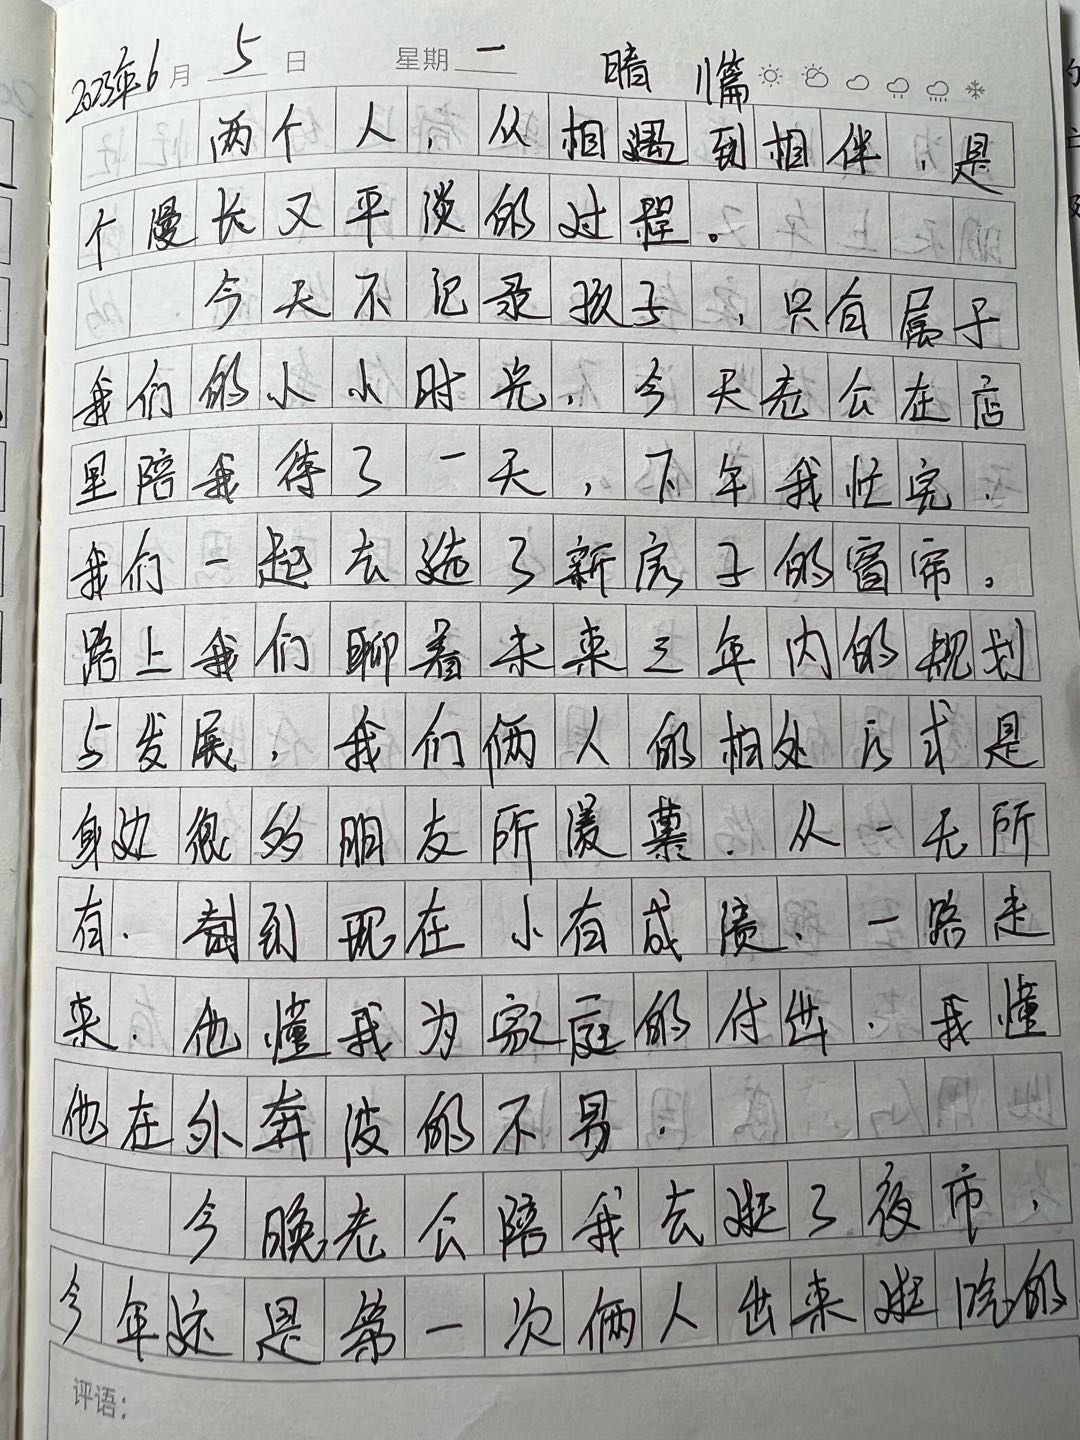 2023年6月5日 星期一 晴 11篇
两个人,从相遇到相伴,是
个漫长又平淡的过程。
今天不记录孩子,只有属于
我们的小小时光,今天老公在店
里陪我待了一天,下午我忙完,
我们一起去选了新房子的窗帘。
路上我们聊着未来三年内的规划
与发展,我们俩人的相处方式是
身边很多朋友所羡慕.从一无所
有.到现在小有成绩、一路走
来.他懂我为家庭的付出.我懂
他在外奔波的不易.
今晚老公陪我去逛了夜市,
今年还是第一次俩人出来逛院的
评语: